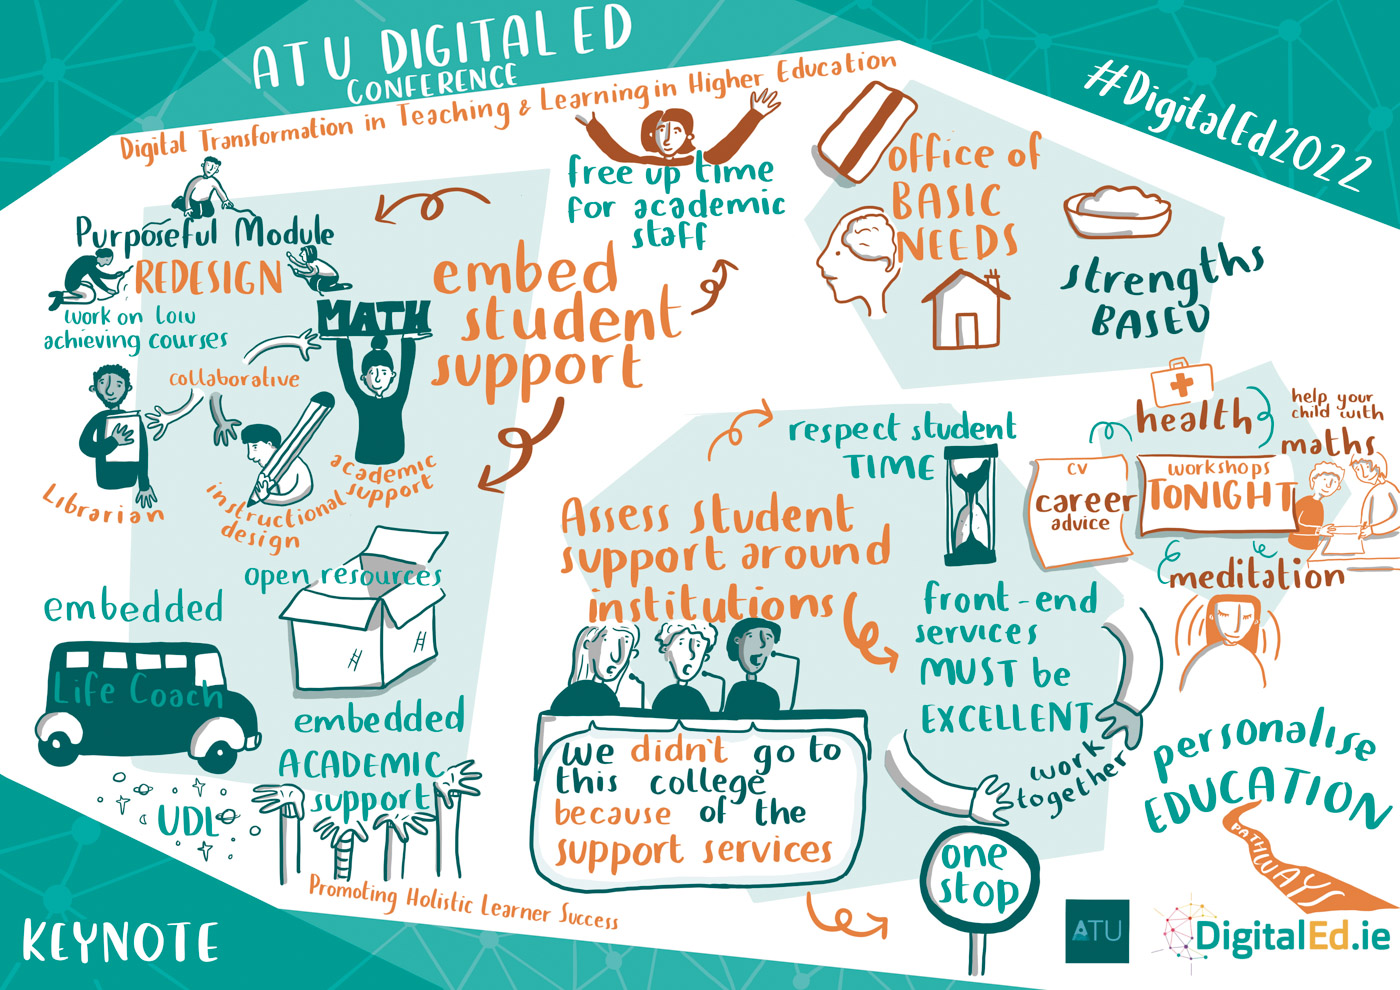 ATU DIGITAL ED
CONFERENCE
Digital Transformation in Teaching & Learning in Higher Education
#DigitalEd2022
Purposeful Module
REDESIGN
work on low
achieving courses
MATH
collaborative
Librarian
instructional
design
academic
support
embed
student
support
free up time
for academic
staff
office of
BASIC
NEEDS
strengths
BASED
open resources
embedded
Life Coach
embedded
ACADEMIC
support
UDL
Promoting Holistic Learner Success
KEYNOTE
Assess student
support around
institutions
we didn't go to
this college
because of the
support services
respect student
TIME
front-end
services
MUST be
EXCELLENT
work
together
one
stop
health
help your
child with
maths
cv
career
advice
workshops
TONIGHT
meditation
personalise
EDUCATION
PATHWAYS
ATU
DigitalEd.ie